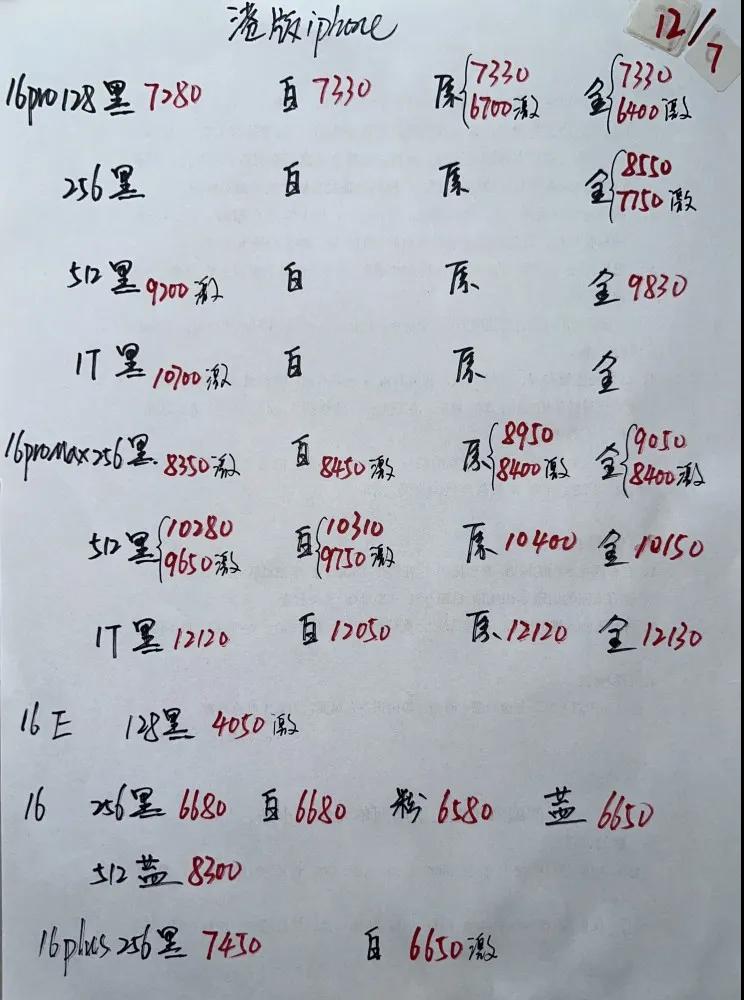 港版iphone 12/7
16pro128黑 7280 白 7330 原{7330 6700激 金{7330 6400激
256黑 白 原 金{8550 7750激
512黑 9200激 白 原 金 9830
1T 黑 10700激 白 原 金
16promax256黑 8350激 白 8450激 原{8950 8400激 金{9050 8400激
512黑{10280 9650激 白{10310 9750激 原 10400 金 10150
1T 黑 12120 白 12050 原 12120 金 12130
16E 128黑 4050激
16 256黑 6680 白 6680 粉 6580 蓝 6650
512蓝 8300
16plus 256黑 7450 白 6650激